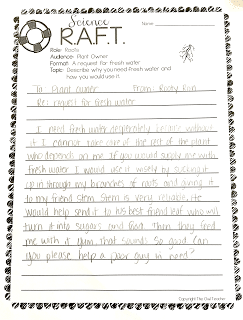 Science
Name:
R.A.F.T.
Role: Roots
Audience: Plant Owner
Format: A request for fresh water
Topic: Describe why you need fresh water and
how you would use it.
To: Plant owner From: Rooty Root
Re: request for fresh water
I need fresh water desperately because without
it I cannot take care of the rest of the plant
who depends on me. If you would supply me with
fresh water I would use it wisely by sucking it
up in through my branches of roots and giving it
to my friend Stem. Stem is very reliable. He
would help send it to his best friend leaf who will
turn it into sugars and food. Then they feed
me with it yum that sounds so good. Can
you please help a poor guy in need?
Copyright The Owl Teacher